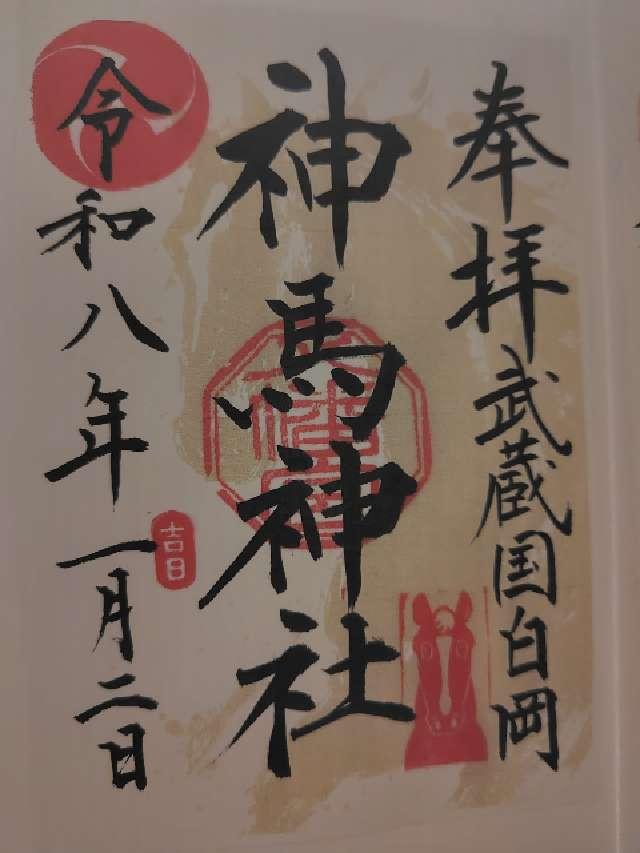 奉拝武蔵国白岡
神馬神社
令和八年一月二日
吉日